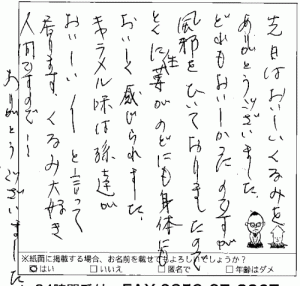 先日はおいしいくるみを
ありがとうございました。
どれもおいしかったのですが
風邪をひいておりましたので
とくに生姜がのどにも身体に
おいしく感じられました。
キャラメル味は孫達が
おいしいーと言って
居ります くるみ大好き
人間ですので…
ありがとうございました
※紙面に掲載する場合、お名前を載せてもよろしいでしょうか？
はい □いいえ □匿名で □年齢はダメ